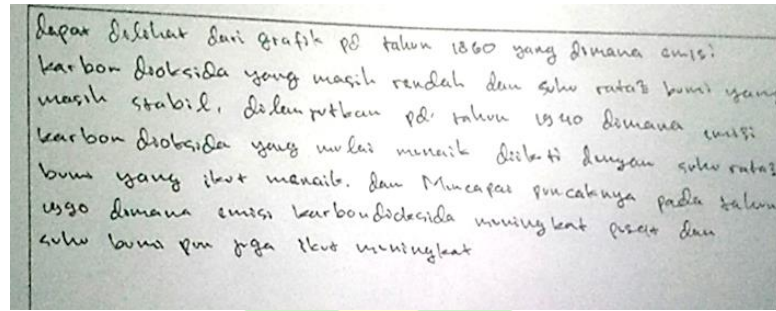 dapat dilihat dari grafik pd tahun 1860 yang dimana emisi
karbon dioksida yang masih rendah dan suhu rata2 bumi yang
masih stabil, dilanjutkan pd tahun 1940 dimana emisi
karbon dioksida yang mulai menaik diikuti dengan suhu rata2
bumi yang ikut menaik. dan Mencapai puncaknya pada tahun
1990 dimana emisi karbondioksida meningkat pesat dan
suhu bumi pun juga ikut meningkat